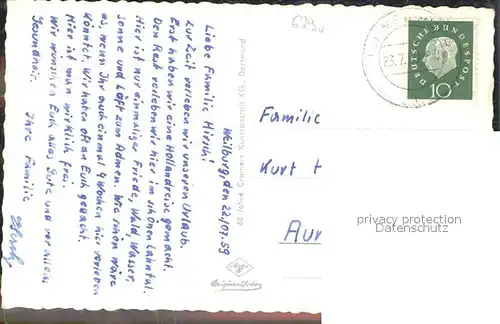 629u
Weilburg, den 22/07.59
Liebe Familie Hirsch!
Zur Zeit verleben wir unseren Urlaub.
Erst haben wir eine Hollandreise gemacht.
Den Rest verleben wir hier im schönen Lahntal.
Hier ist nur einmaliger Friede, Wald, Wasser,
Sonne und Luft zum Admen. Wie schön wäre
es, wenn Ihr auch einmal 4 Wochen hier verleben
könntet. Wir haben oft an Euch gedacht.
Hier ist man wirklich frei.
Wir wünschen Euch alles Gute und vor allem
Gesundheit.
Ihre Familie
60 Jahre Cramers Kunstanstalt KG., Dortmund
Agfa
Originalfoto
23.7.
DEUTSCHE BUNDESPOST
10
Familie
Kurt
Aur
privacy protection
Datenschutz